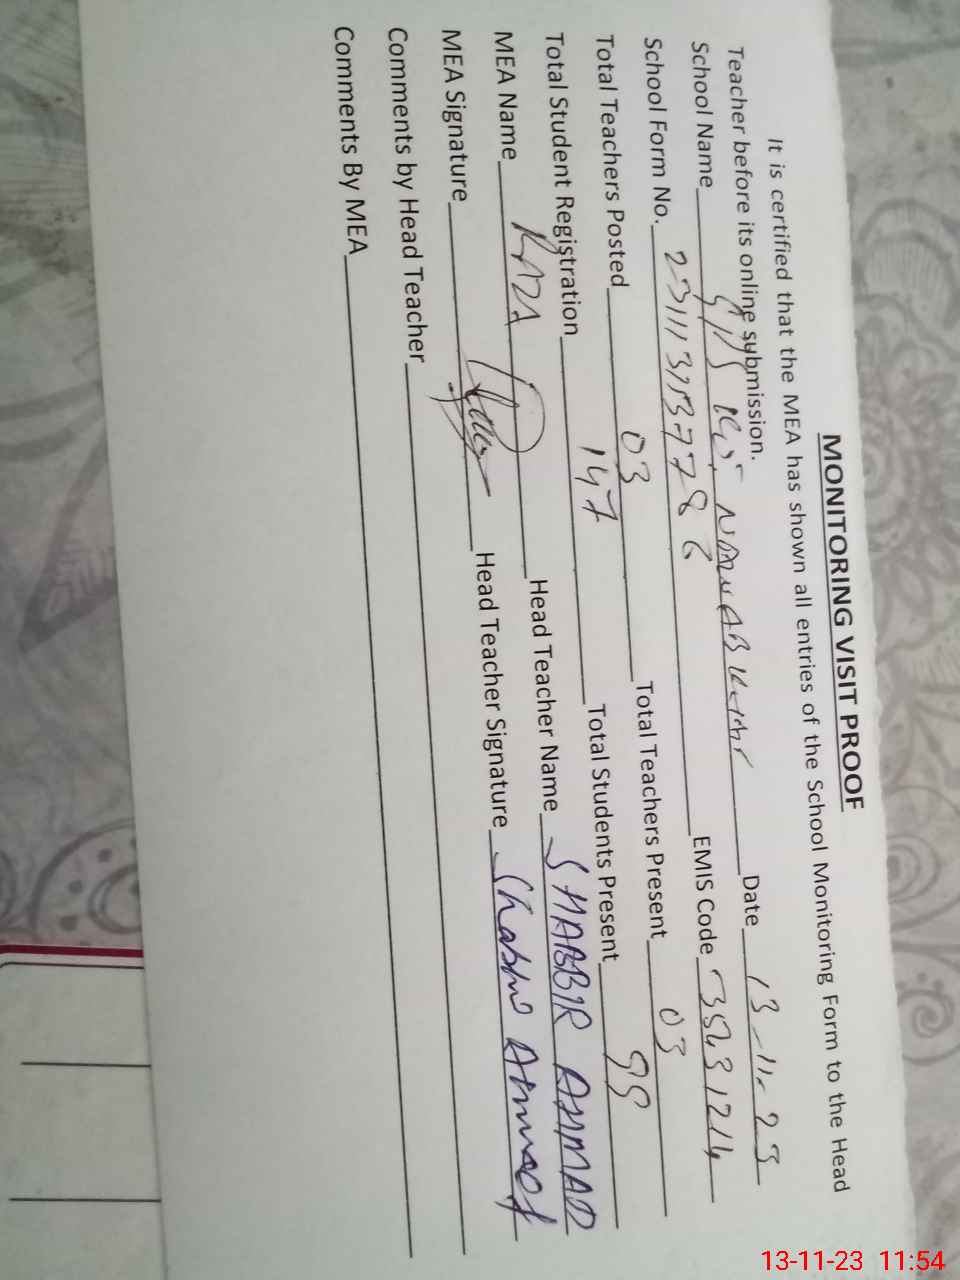 MONITORING VISIT PROOF
It is certified that the MEA has shown all entries of the School Monitoring Form to the Head
Teacher before its online submission.
School Name GPS Date 13-11-23
School Form No. EMIS Code 35431214
Total Teachers Posted 03 Total Teachers Present 03
Total Student Registration 147 Total Students Present 99
MEA Name RAZA Head Teacher Name SHABBIR AHMAD
MEA Signature Head Teacher Signature Shabbir Ahmad
Comments by Head Teacher
Comments By MEA
13-11-23 11:54